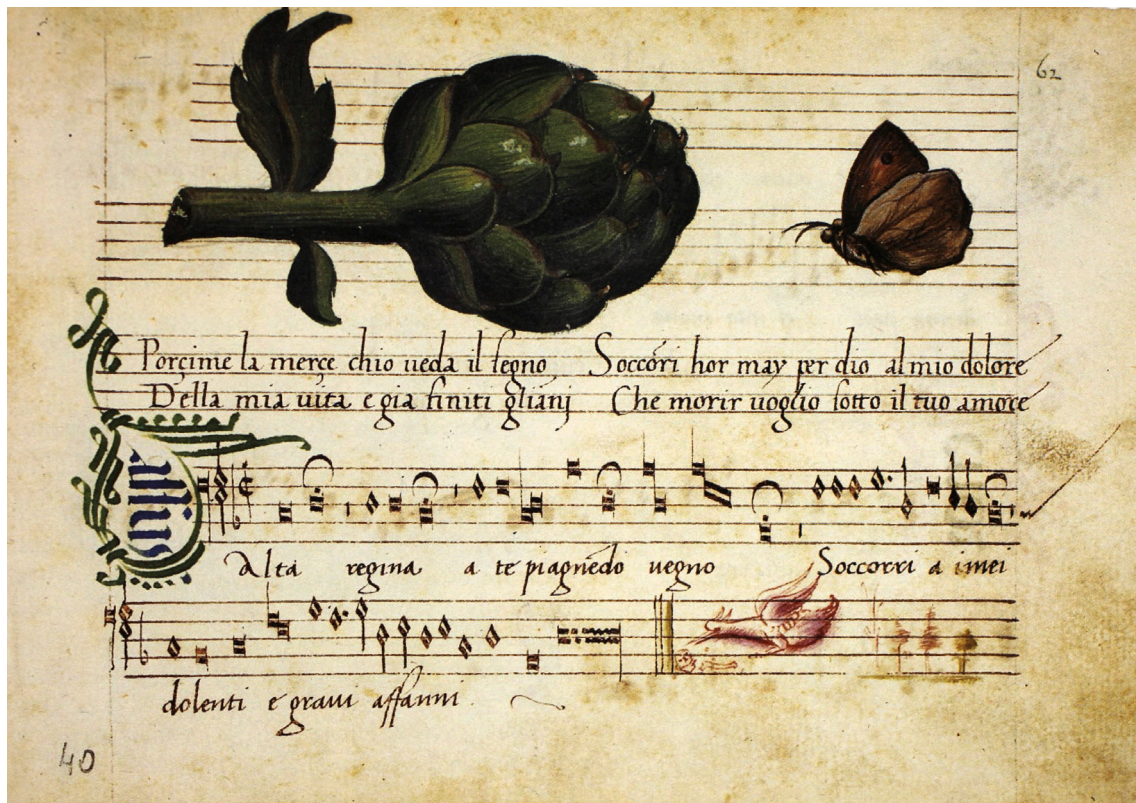 62
Porgime la merce chio ueda il segno Soccori hor may per dio al mio dolore
Della mia uita e gia finiti gliani Che morir uoglio sotto il tuo amore
Bassus
Alta regina a te piagnedo uegno Soccorri a imei
dolenti e graui affanni
40